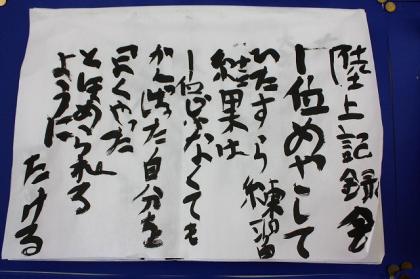 陸上記録会
1位めやして
ひたすら練習
結果は
1位じゃなくても
がんばった自分を
「よくやった
とほめられる
ように
たける